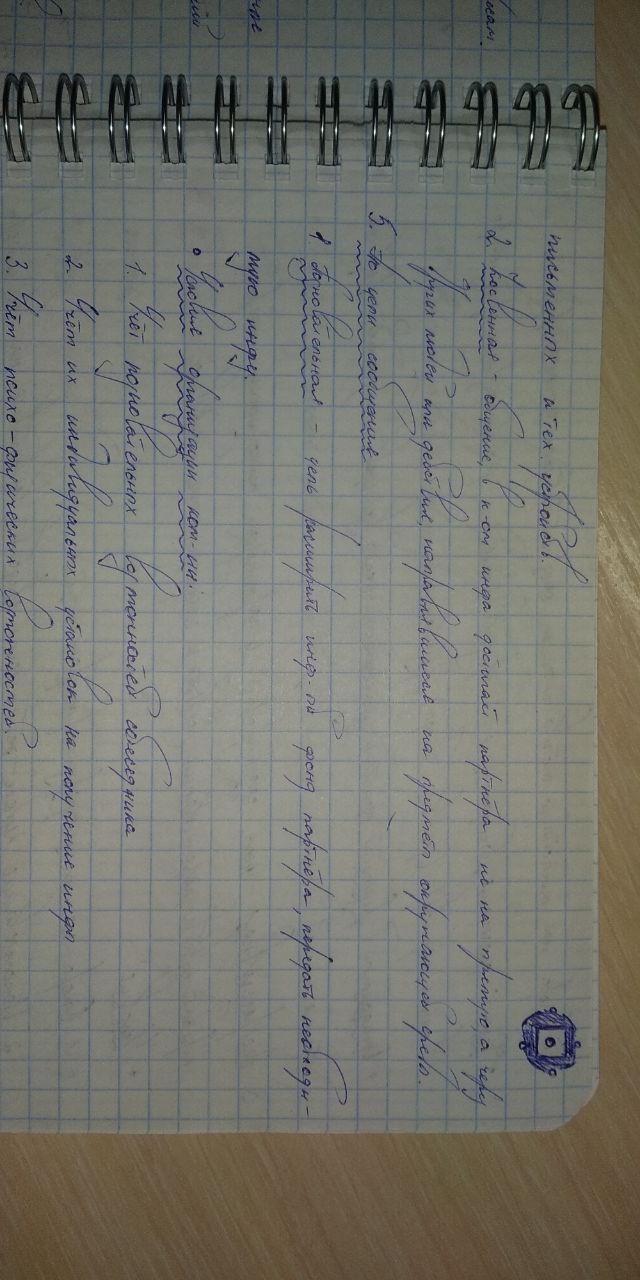 письменных и тех. устройств.
2. Косвенная - общение, в к-ом инфа достигает партнёра не на прямую, а через
других людей или действия, направлявшиеся на предмет окружающей среды.
5. По цели сообщения
1 Познавательная - цель расширить инф-ый фонд партнёра, передать необходи-
мую инфу.
• Условия организации ком-ии.
1. Учёт познавательных возможностей собеседника
2. Учёт их индивидуальных установок на получение инфы
3. Учёт психо-физических возможностей.